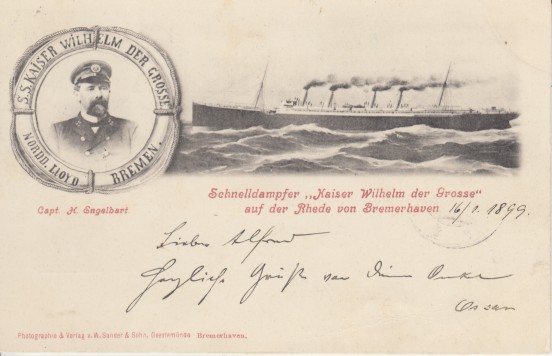 S.S. KAISER WILHELM DER GROSSE
NORDD. LLOYD BREMEN.
Capt. H. Engelbart.
Schnelldampfer „Kaiser Wilhelm der Grosse“
auf der Rhede von Bremerhaven 16/1. 1899.
Lieber Alfred
Herzliche Grüße von Deinem Onkel
Oscar
Photographie & Verlag v. W. Sander & Sohn, Geestemünde Bremerhaven.